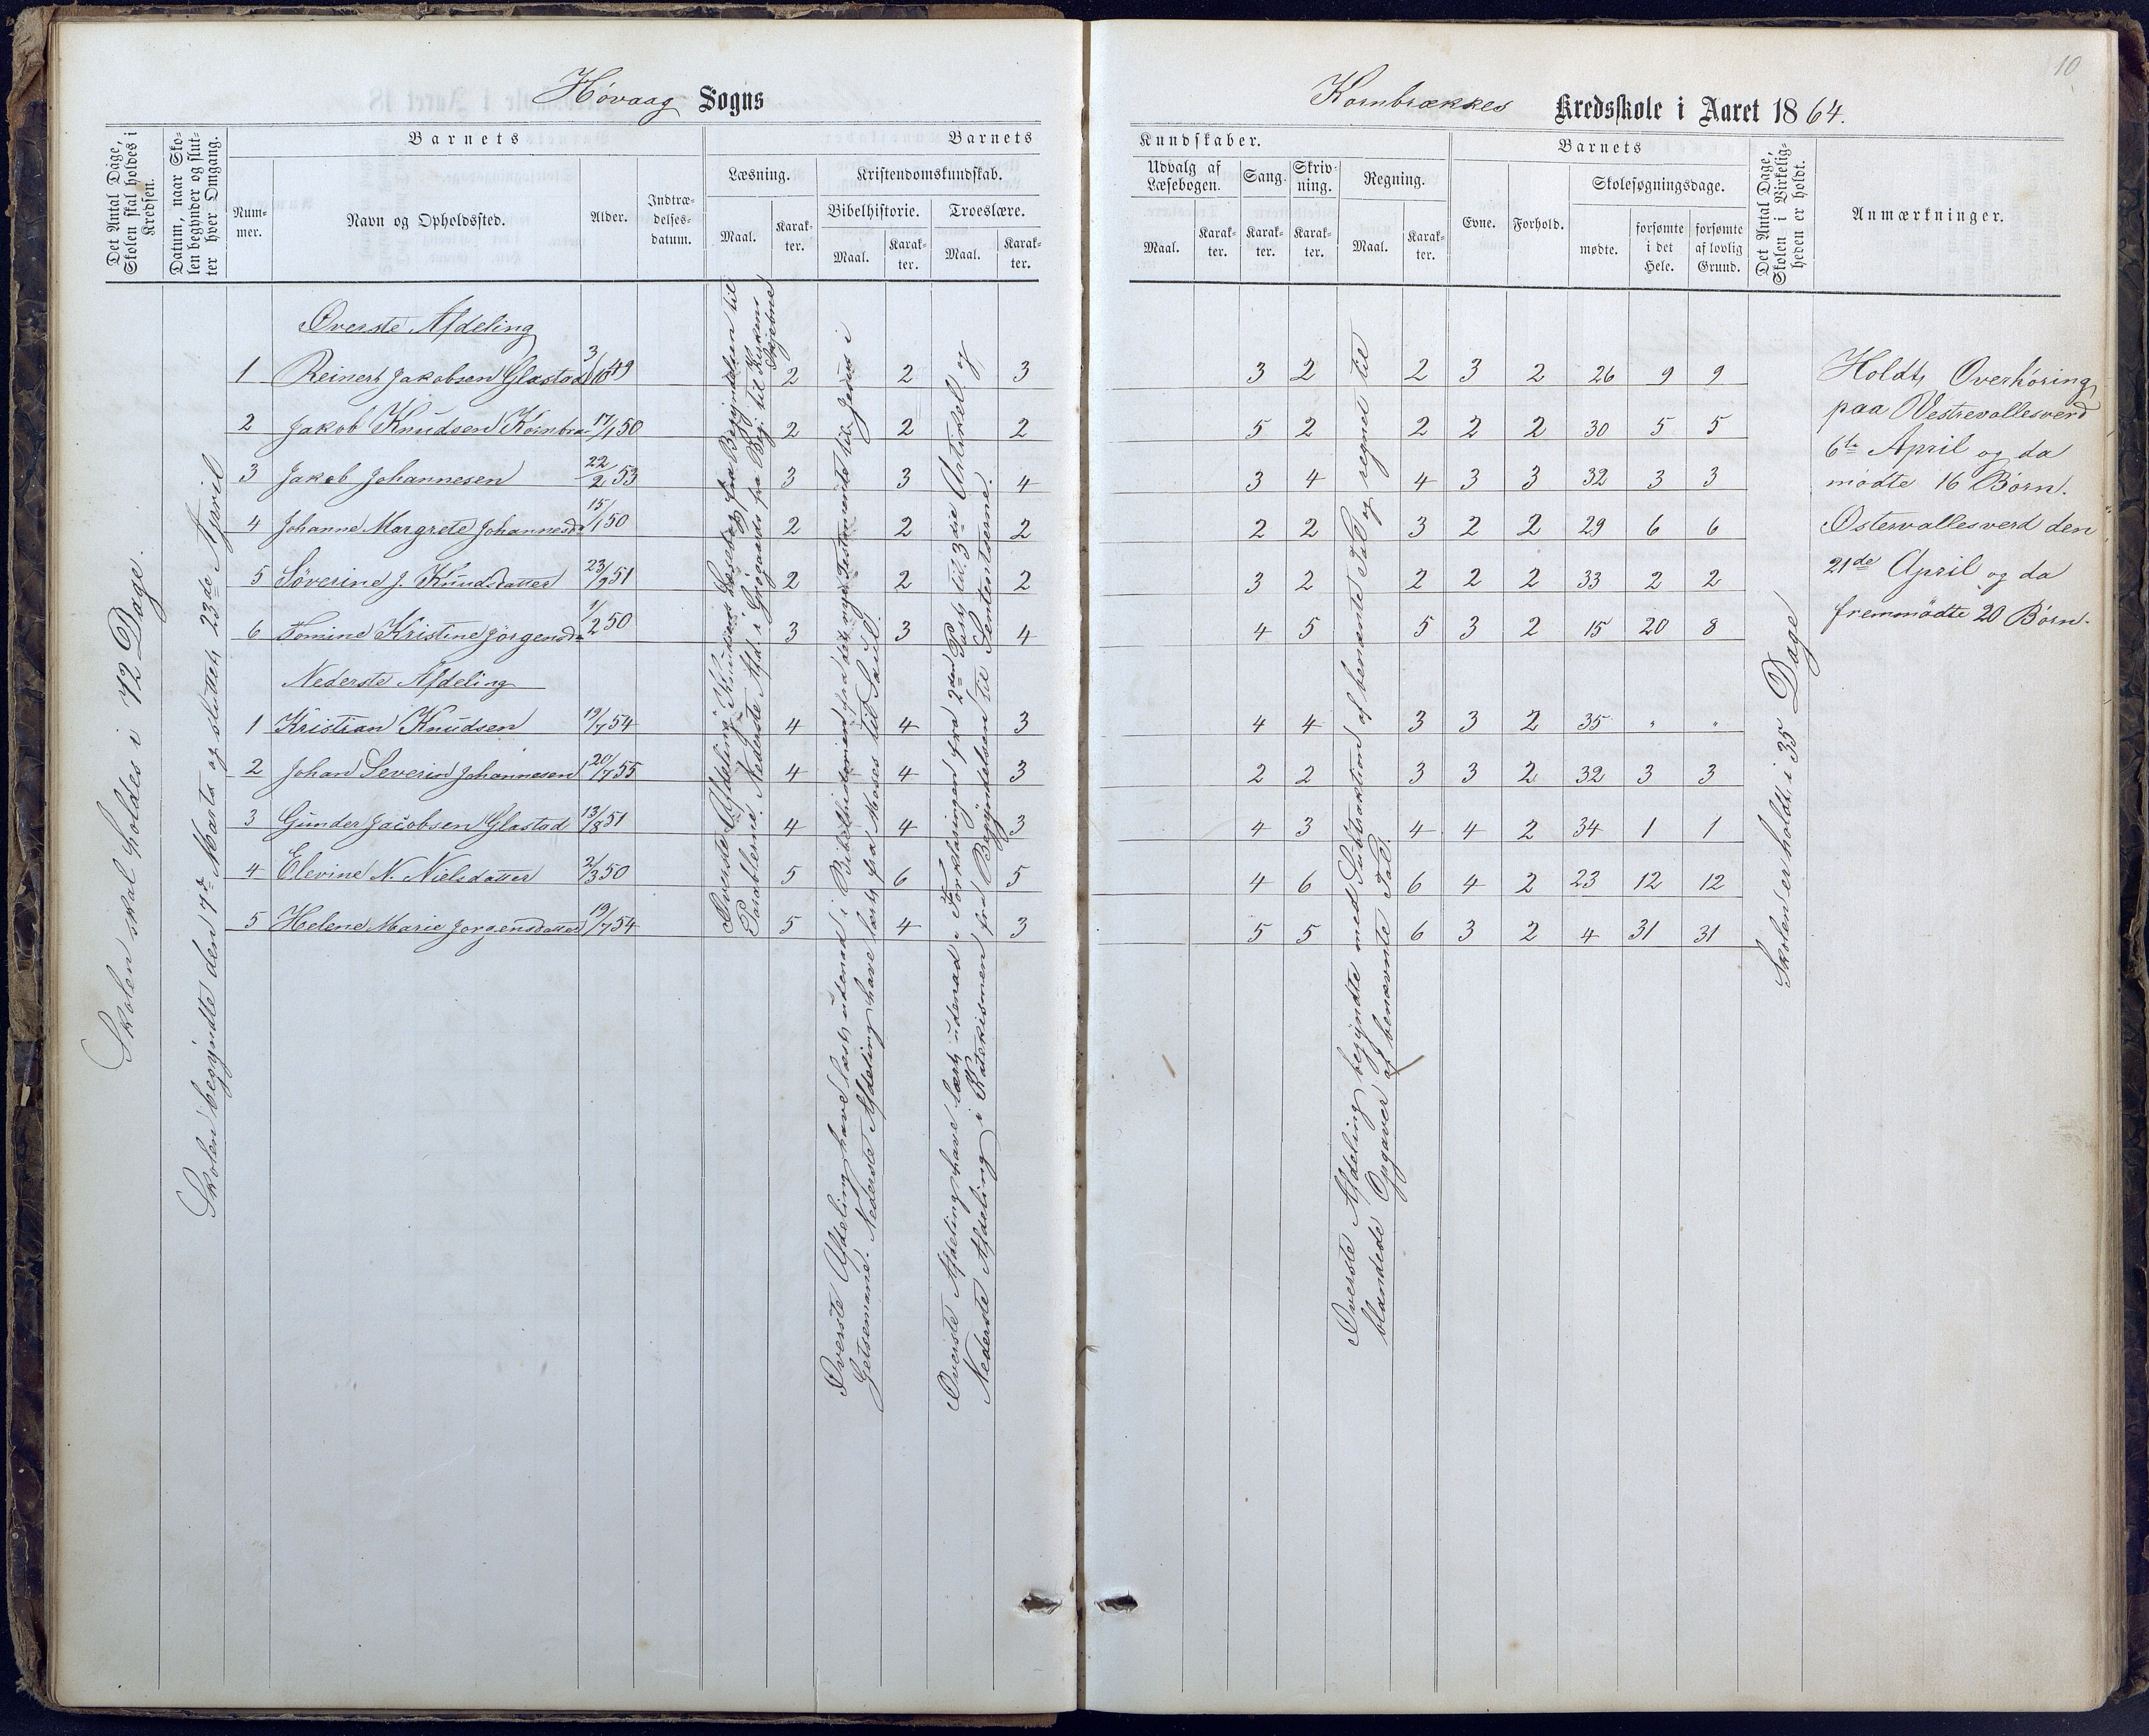 10
Høvaag Sogns
Kornbrækkes Kredsskole i Aaret 1864.
Det Antal Dage, Skolen skal holdes i Kredsen.
Datum, naar Skolen begynder og slutter hver Omgang.
Barnets
Nummer.
Navn og Opholdssted.
Alder.
Indtrædelsesdatum.
Barnets
Læsning.
Maal.
Karakter.
Kristendomskundskab.
Bibelhistorie.
Maal.
Karakter.
Troeslære.
Maal.
Karakter.
Kundskaber.
Udvalg af Læsebogen.
Maal.
Karakter.
Sang.
Karakter.
Skrivning.
Karakter.
Regning.
Maal.
Karakter.
Barnets
Evne.
Forhold.
Skolesøgningsdage.
mødte.
forsømte i det Hele.
forsømte af lovlig Grund.
Det Antal Dage, Skolen i Virkeligheden er holdt.
Anmærkninger.
Skolen skal holdes i 72 Dage.
Skolen begyndte den 7de Marts og sluttet 23de April
Øverste Afdeling
1 Reinert Jakobsen Glastad 3/10 49 2 2 3 3 2 2 3 2 26 9 9
2 Jakob Knudsen Kornbræ 17/1 50 2 2 2 5 2 2 2 2 30 5 5
3 Jakob Johannesen 22/2 53 3 3 4 3 4 4 3 3 32 3 3
4 Johanne Margrete Johannesd 15/1 50 2 2 2 2 2 3 2 2 29 6 6
5 Söverine J. Knudsdatter 23/9 51 2 2 2 3 2 2 2 2 33 2 2
6 Tomine Kristine Jörgensda 1/2 50 3 3 4 4 5 5 3 2 15 20 8
Nederste Afdeling
1 Kristian Knudsen 19/7 54 4 4 3 4 4 3 3 2 35 " "
2 Johan Severin Johannesen 20/7 55 4 4 3 2 2 3 3 2 32 3 3
3 Gunder Jacobsen Glastad 13/8 51 4 4 3 4 3 4 4 2 34 1 1
4 Elevine N. Nielsdatter 2/3 50 5 6 5 4 6 6 4 2 23 12 12
5 Helene Marie Jørgensdatter 19/7 54 5 4 3 5 5 6 3 2 4 31 31
Øverste Afdeling Knudsens Læsebog fra Begyndelsen til
Parablerne. Nederste Afd. i Grøgaards fra Beg. til Kirkens
Øverste Afdeling have læst udenad i Bibelhistorien fra det nye Testamente til Jesus i
Getsemane. Nederste Afdeling have læst fra Moses til Saul.
Øverste Afdeling have lært udenad i Forklaringen fra 2den Part til 3die Artikel og
Nederste Afdeling i Katekismen fra Begyndelsen til Sententserne.
Øverste Afdeling begyndte med Subtraktion af benævnte Tal og regnet til
blandede Opgaver af benævnte Tal.
Skolen er holdt i 35 Dage
Holdt Overhöring
paa Vestrevallesverd
6te April og da
mødte 16 Börn.
Østervallesverd den
21de April og da
fremmödte 20 Börn.